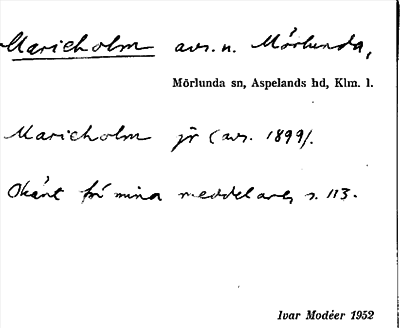 Marieholm avs. n. Mörlunda,
Mörlunda sn, Aspelands hd, Klm. l.
Marieholm jr (avs. 1899).
Okänt för mina meddelare, s. 113.
Ivar Modéer 1952